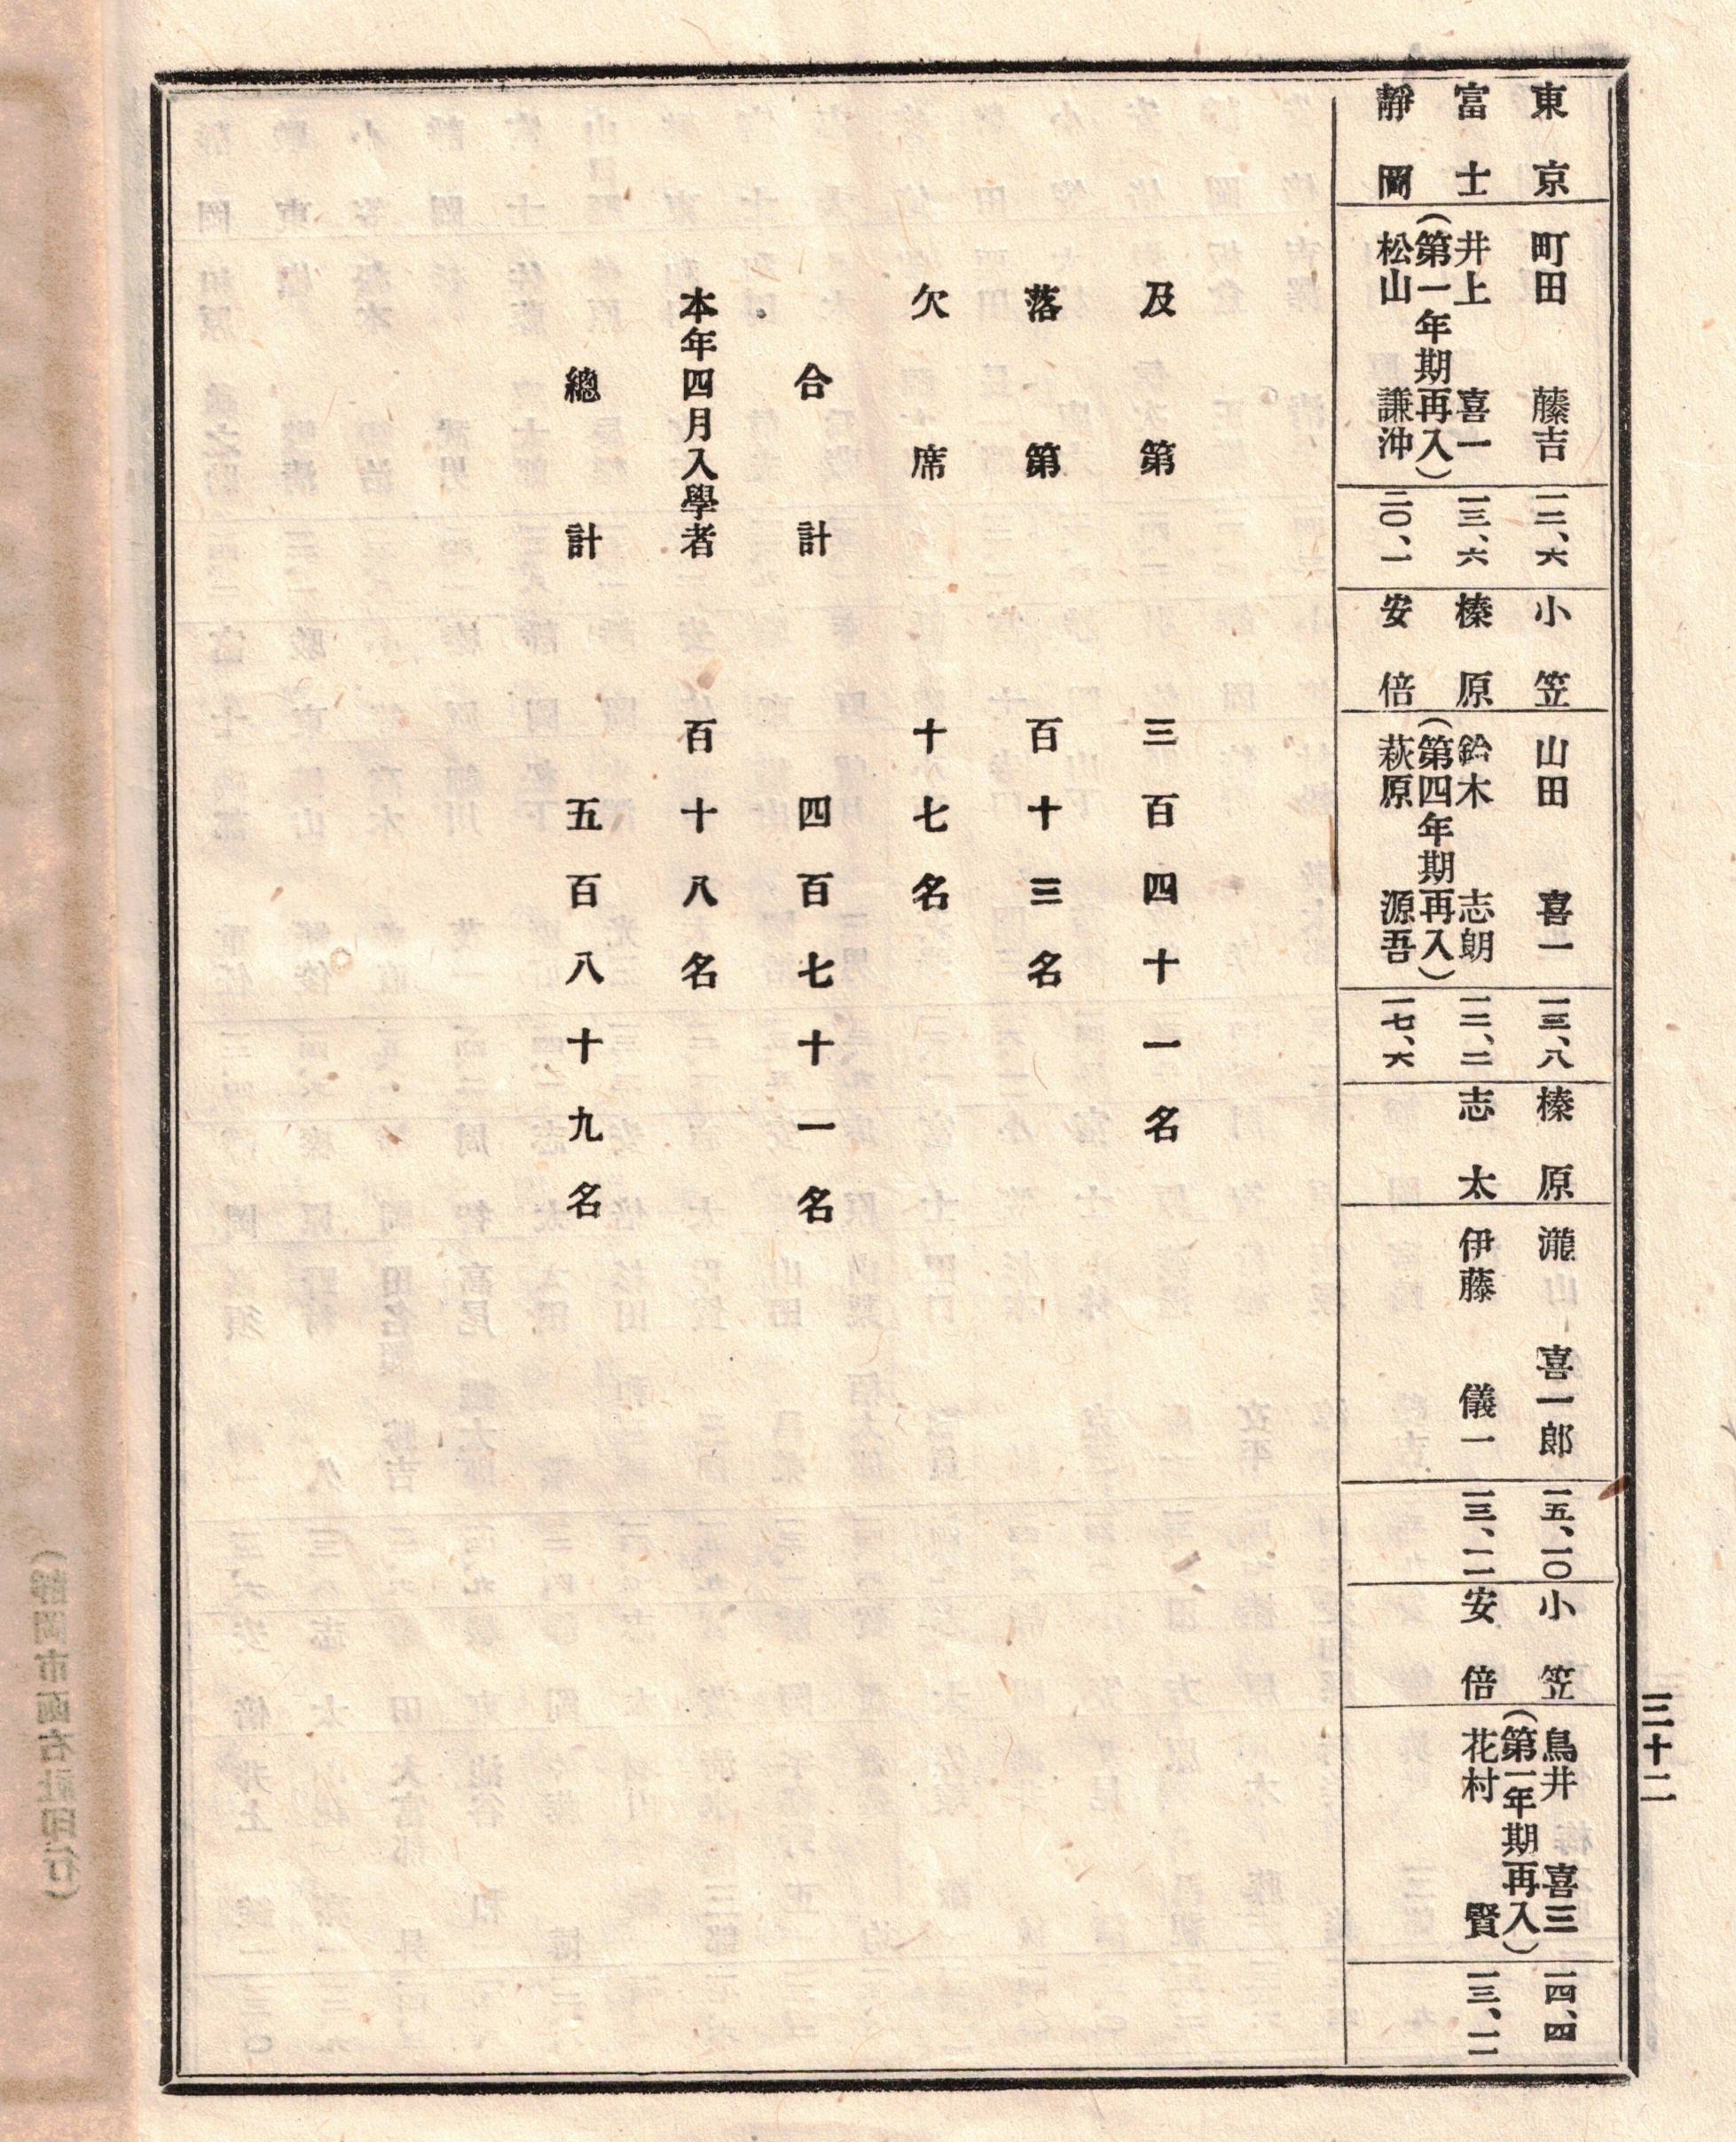 東京 町田 藤吉 一二、六 小笠 山田 喜一 一三、八 榛原 瀧 喜一郎 一五、一〇 小笠 鳥井 喜三 一四、四
富士 井上 喜一 一三、六 榛原 鈴木 志朗 一二、二 志太 伊藤 儀一 一三、一一 安倍 (第一年期再入) 花村 賢 一三、一一
靜岡 (第一年期再入) 松山 謙沖 二〇、一 安倍 (第四年期再入) 萩原 源吾 一七、六
及第 三百四十一名
落第 百十三名
欠席 十七名
合計 四百七十一名
本年四月入學者 百十八名
總計 五百八十九名
三十二